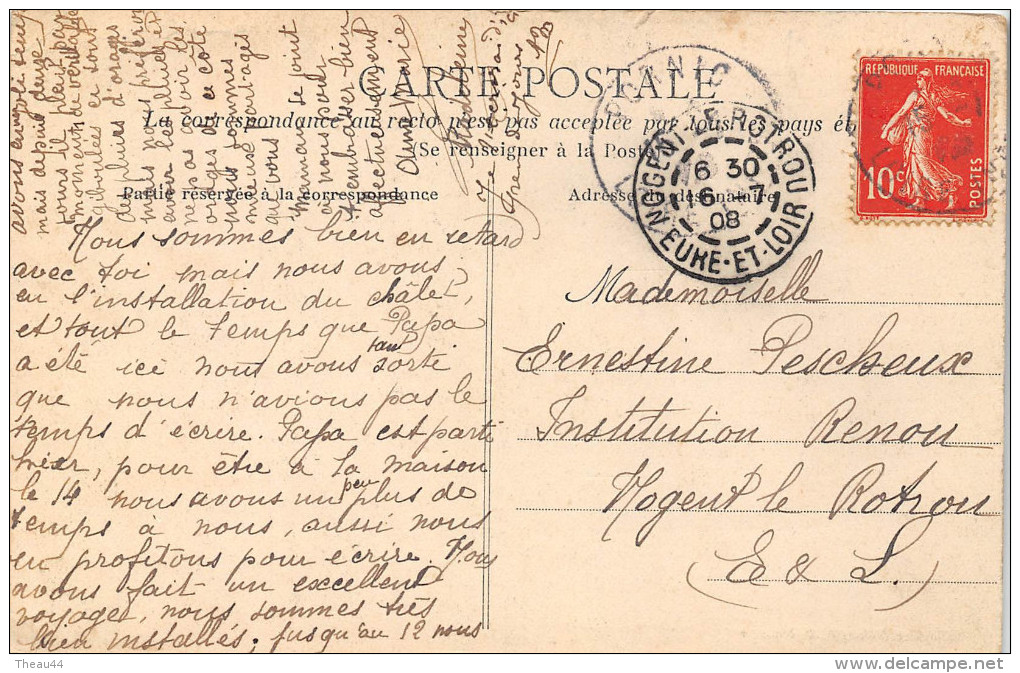 CARTE POSTALE
La correspondance au recto n'est pas acceptée par tous les pays
(Se renseigner à la Poste
Partie réservée à la correspondance
Adresse du destinataire
RÉPUBLIQUE FRANÇAISE
10c
POSTES
NOGENT-LE-ROTROU
6 30
16 -7
08
EURE-ET-LOIR
Nous sommes bien en retard
avec toi mais nous avons
eu l'installation du châlet,
et tout le temps que Papa
a été ici nous avons tant sorti
que nous n'avions pas le
temps d'écrire. Papa est parti
hier, pour être à la maison
le 14 nous avons un peu plus de
temps à nous, aussi nous
en profitons pour écrire. Nous
avons fait un excellent
voyage, nous sommes très
bien installés; jusqu'au 12 nous
mais depuis deux
jours il pleut par
moments
d'orages
mais
nous sommes
maman se joint
à nous pour
t'embrasser bien
affectueusement
Anne Marie
Mademoiselle
Ernestine Pescheux
Institution Renou
Nogent le Rotrou
(E & L.)
Theau44
delcampe.net